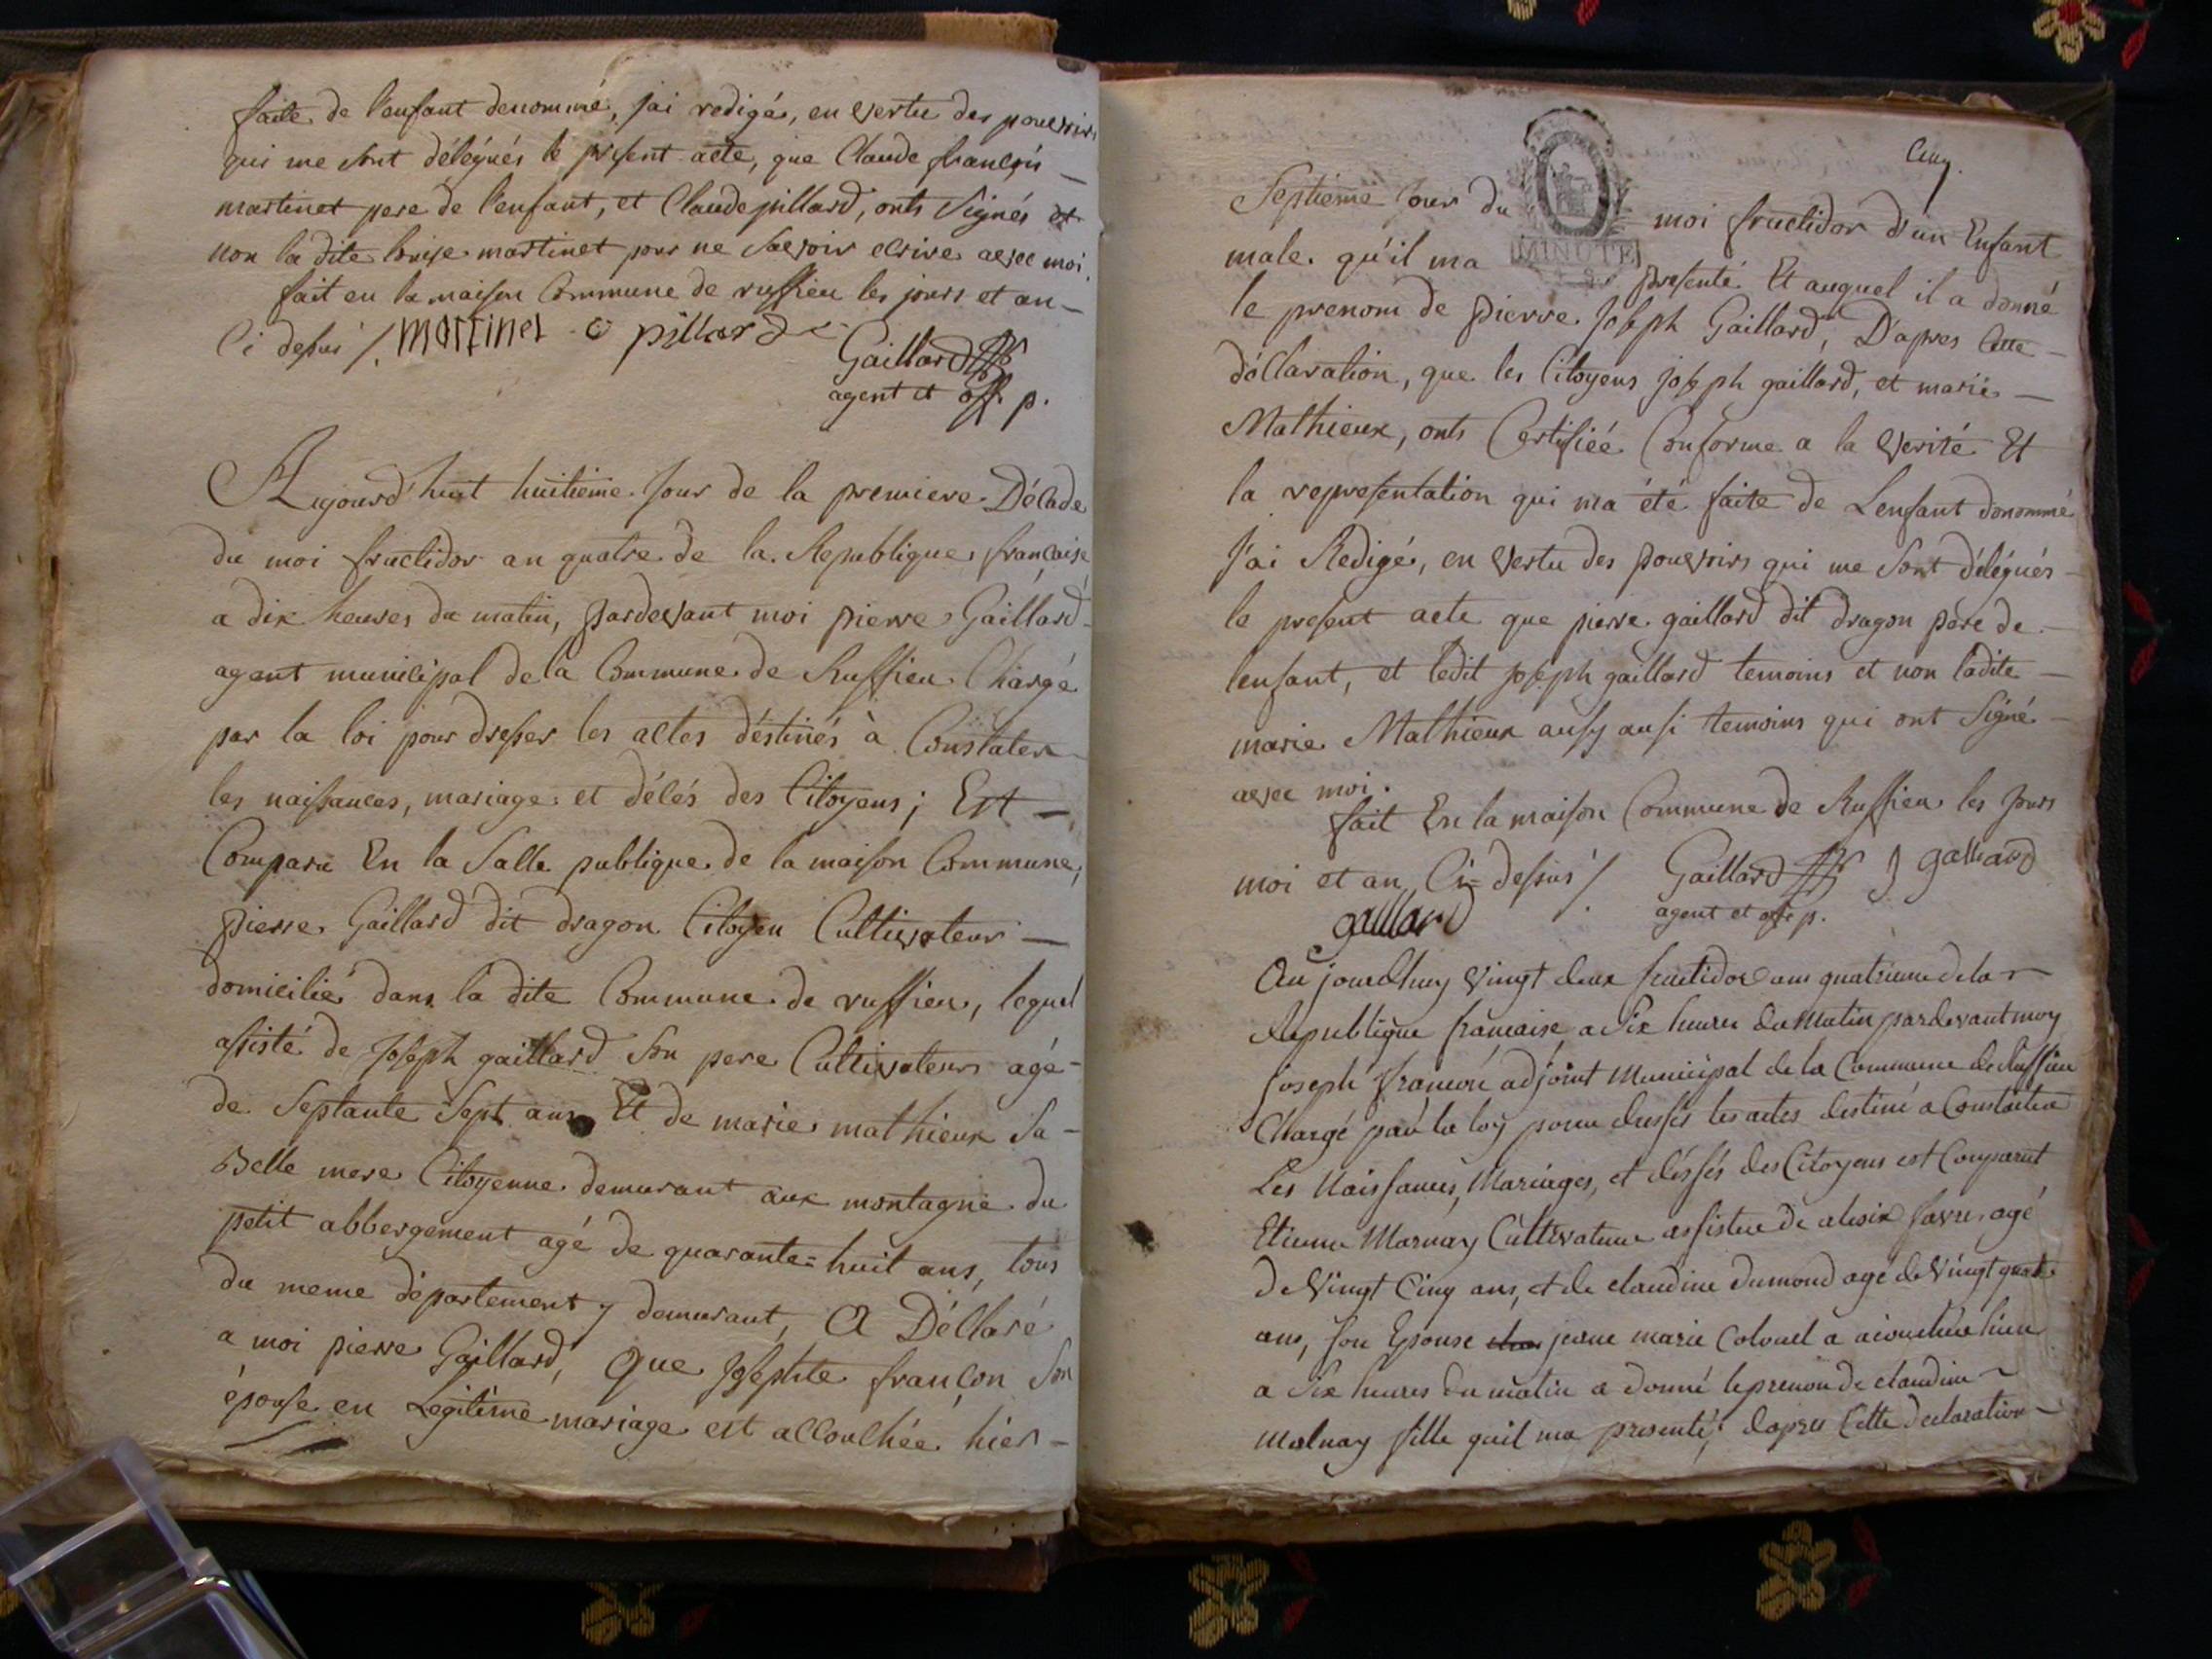 faite de l'enfant denommé, jai redigés, en vertu des pouvoirs
qui me sont délégués le present acte, que Claude françois
martinet pere de l'enfant, et Claude pillard, onts Signés et
non la dite louise martinet pour ne Savoir ecrire avec moi.
fait en la maison Commune de ruffieu les jours et an
Ci dessus /. martinet C pillard
Gaillard
agent et off. p.
Aujourd'huit huitieme Jour de la premiere Décade
du moi fructidor an quatre de la Republique française
a dix heures du matin, pardevant moi pierre Gaillard
agent municipal de la Commune de Ruffieu Chargé
par la loi pour dresser les actes déstinés à Constater
les naissances, mariage et décés des Citoyens ; Est
Comparu En la Salle publique de la maison Commune,
pierre Gaillard dit dragon Citoyen Cultivateur
domicilié dans la dite Commune de ruffieu, lequel
assisté de Joseph gaillard Son pere Cultivateur agé
de Septante Sept ans Et de marie mathieux Sa
Belle mere Citoyenne demurant aux montagne du
petit abbergement agé de quarante=huit ans, tous
du meme département y demurant, A Déclaré
a moi pierre Gaillard, Que Josephte françon Son
épouse en Legitime mariage est accouchée hier
Cinq.
Septieme Jour du moi fructidor d'un Enfant
MINUTE
male qu'il ma presenté Et auquel il a donné
le prenom de pierre Joseph Gaillard, D'apres Cette
déclaration, que les Citoyens joseph gaillard, et marie
Mathieux, onts Certifiée Conforme a la verité Et
la representation qui ma été faite de Lenfant donommé
J'ai Redigé, en vertu des pouvoirs qui me Sont délégués
le present acte que pierre gaillard dit dragon pere de
lenfant, et ledit joseph gaillard temoins et non ladite
marie Mathieux aussy aussi temoins qui ont Signé
avec moi.
fait En la maison Commune de Ruffieu les jours
moi et an Ci=dessus /. Gaillard J gallard
gaillard agent et off p.
Aujourdhuy vingt deux fructidor ans quatrieme de la
Republique française a Six heures du Matin pardevant moy
joseph françon adjoint Municipal de la Commune de Ruffieu
Chargé par la loy pour dresser les actes destiné a Constater
Les Naissances, Mariages, et décés des Citoyens est Comparut
Etienne Marnay Cultivateur assisteé de alexix favre agé
de vingt Cinq ans, et de claudine dumond agé de vingt quatre
ans, son Epouse jeane marie Colonel a acouchée hier
a Six heures du matin a donné le prenon de claudine
Malnay fille quil ma presenté, dapres Cette declaration